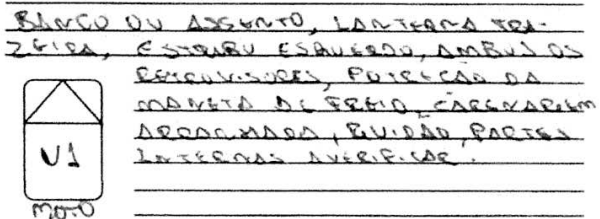 BANCO OU ASSENTO, LANTERNA TRA-
ZEIRA, ESTRIBU ESQUERDO, AMBUS OS
RETROVISORES, POTECÇÃO DA
MANETA DE FREIO, CARENAGEM
ARRANHADA, GUIDÃO, PARTES
INTERNAS AVERIFICAR.
V1
MOTO